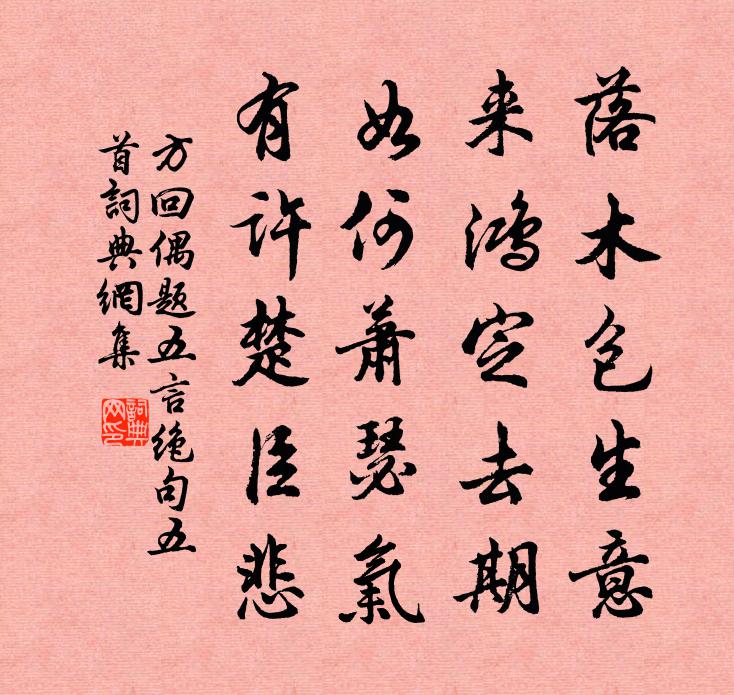 落木包生意
来鸿定去期
如何萧瑟氣
有许楚臣悲
方回偶题五言绝句五
首詞典網集
詞典网印